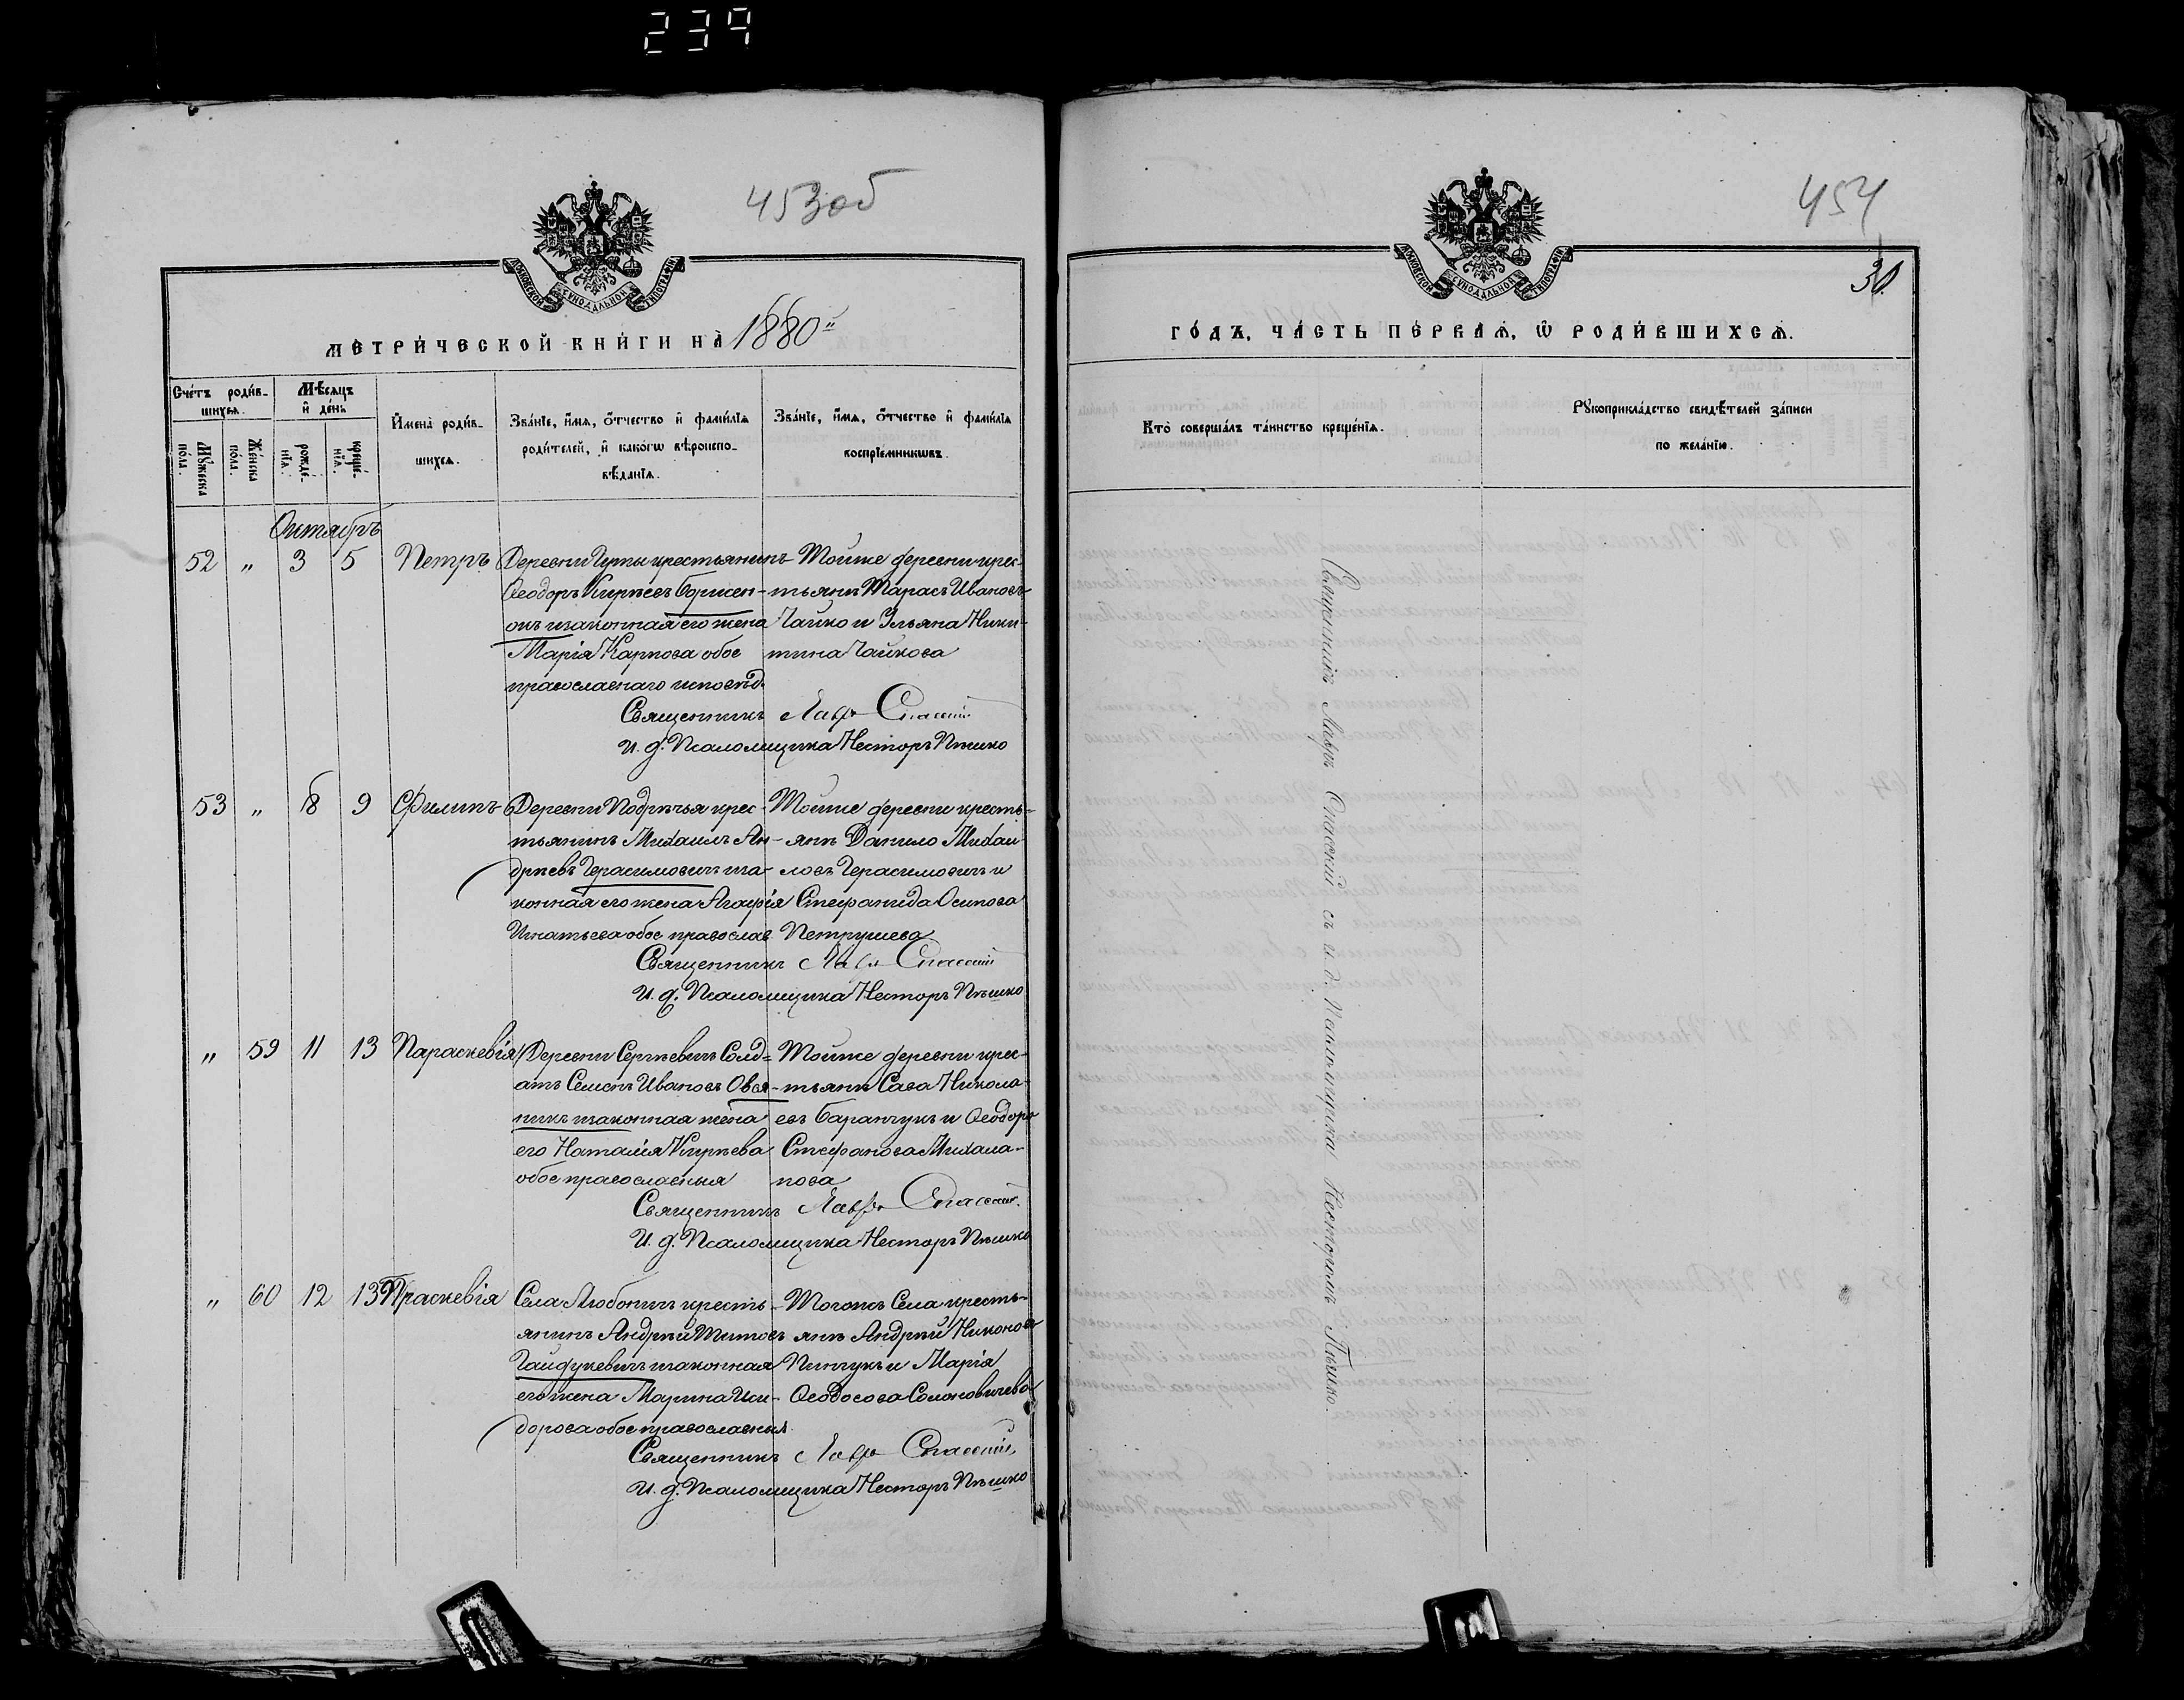 239
453об
МОСКОВСКОЙ СѴНОДАЛЬНОЙ ТИПОГРАФІИ
МЕТРИ́ЧЕСКОЙ КНИ́ГИ НА̀ 1880й
Сче́тъ роди́в-
шихсѧ.
Мꙋ́жеска
по́ла.
Же́нска
по́ла.
Мѣ́сѧцъ
и҆ де́нь
рожде́-
нїѧ.
креще́-
нїѧ.
И҆мена̀ роди́в-
шихсѧ.
Зва́нїе, и҆́мѧ, о҆́тчество и҆ фами́лїѧ
роди́телей, и҆ како́гѡ вѣроиспо-
вѣ́данїѧ.
Зва́нїе, и҆́мѧ, о҆́тчество и҆ фами́лїѧ
воспрїе́мникѡвъ.
Октябрь
52 " 3 5 Петръ
Деревни Гуты крестьянинъ
Ѳеодоръ Кирѣевъ Борисен-
окъ и законная его жена
Марія Карпова обое
православнаго исповѣд.
Тойже деревни крес-
тьянинъ Тарасъ Ивановъ
Чайко и Ульяна Ники-
тина Чайкова
Священникъ Лавръ Спасскій
И. д. Псаломщика Несторъ Пѣшко
53 " 8 9 Филипъ
Деревни Подрѣчья крес-
тьянинъ Михаилъ Ан-
дреевъ Герасимовичъ и за-
конная его жена Агафія
Игнатьева обое православ.
Тойже деревни кресть-
янинъ Данило Михаи-
ловъ Герасимовичъ и
Стефанида Осипова
Петрушева
Священникъ Лавръ Спасскій
И. д. Псаломщика Несторъ Пѣшко
" 59 11 13 Параскевія
Деревни Сергѣевичъ Солд-
атъ Семенъ Ивановъ Овся-
никъ и законная жена
его Наталія Кирѣева
обое православныя
Тойже деревни крес-
тьянинъ Сава Никола-
евъ Баранчукъ и Ѳеодора
Стефанова Михала-
пова
Священникъ Лавръ Спасскій
И. д. Псаломщика Несторъ Пѣшко
" 60 12 13 Параскевія
Села Любоничъ кресть-
янинъ Андрей Титовъ
Гайдукевичъ и законная
его жена Марина Иси-
дорова обое православныя.
Тогожъ Села кресть-
янинъ Андрей Никоновъ
Пинчукъ и Марія
Ѳеодосова Солоновичева
Священникъ Лавръ Спасскій
И. д. Псаломщика Несторъ Пѣшко
454
30.
МОСКОВСКОЙ СѴНОДАЛЬНОЙ ТИПОГРАФІИ
ГО́ДЪ, ЧА́СТЬ ПЕ́РВАѦ, Ѡ҆ РОДИ́ВШИХСѦ.
Кто̀ соверша́лъ та́инство креще́нїѧ.
Рꙋкоприкла́дство свидѣ́телей за́писи
по жела́нїю.
Священникъ Лавръ Спасскій съ и. д. Псаломщика Несторомъ Пѣшко.